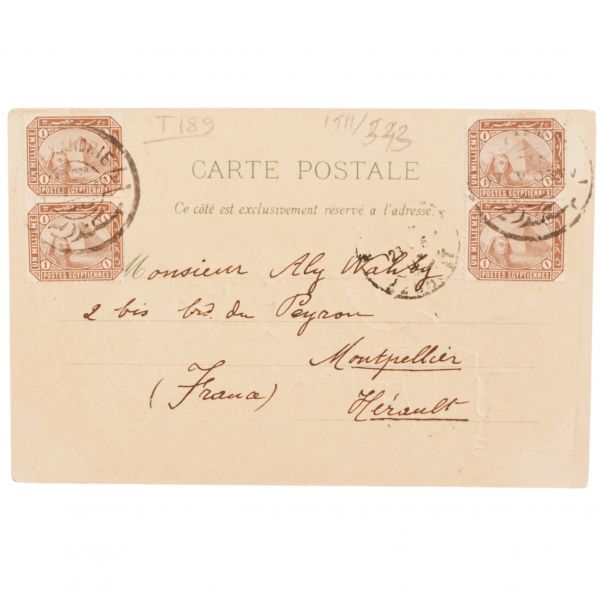 T 189
CARTE POSTALE
Ce côté est exclusivement réservé à l'adresse.
UN MILLIEME
POSTES EGYPTIENNES
UN MILLIEME
POSTES EGYPTIENNES
UN MILLIEME
POSTES EGYPTIENNES
UN MILLIEME
POSTES EGYPTIENNES
Monsieur Aly Wahby
2 bis bd. du Peyrou
Montpellier
(France) Hérault